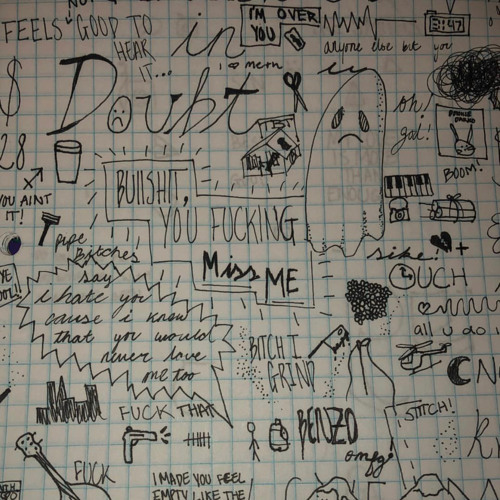 FEELS GOOD TO
HEAR
IT...
in
I'M OVER
YOU
3:47
anyone else but you
i ♡ mcm
$
Doubt
oh!
gal!
28
BOOM!
YOU AINT
IT!
BULLSHIT,
YOU FUCKING
Miss ME
pipe
Bitches
sike!
OUCH
say
i hate you
cause i know
that you would
never love
me too
all u do
BITCH I
GRIND
FUCK THAT
STITCH!
BENZO
omfg!
FUCK
I MADE YOU FEEL
EMPTY LIKE THE